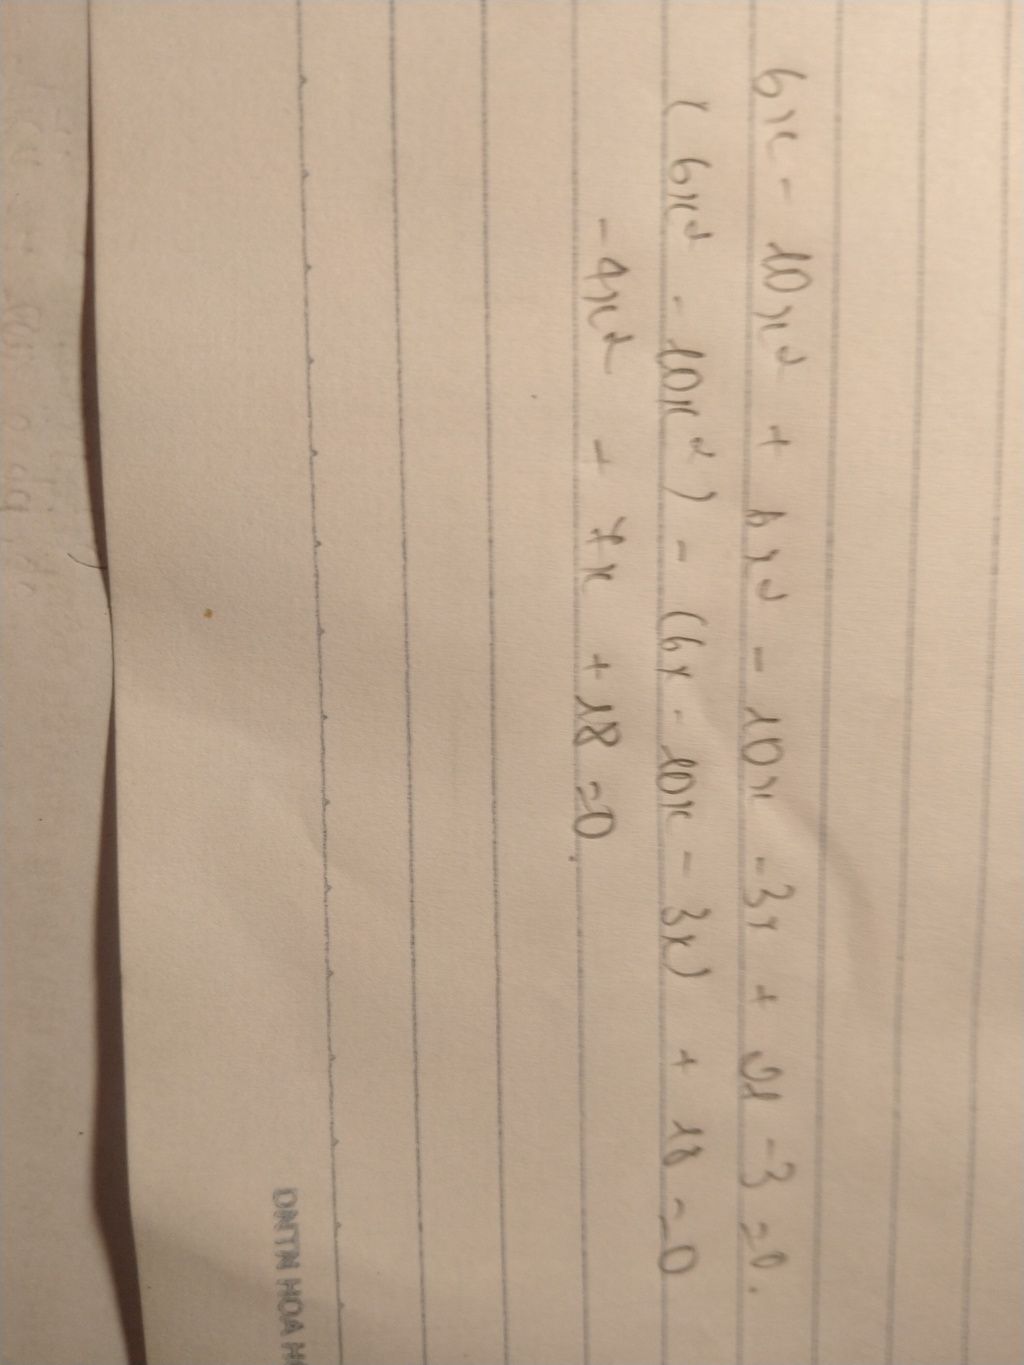 6x - 10x² + 6x² - 10x - 3x + 21 - 3 = 0.
( 6x² - 10x² ) - (6x - 10x - 3x) + 18 = 0
-4x² + 7x + 18 = 0.
DNTN HOA